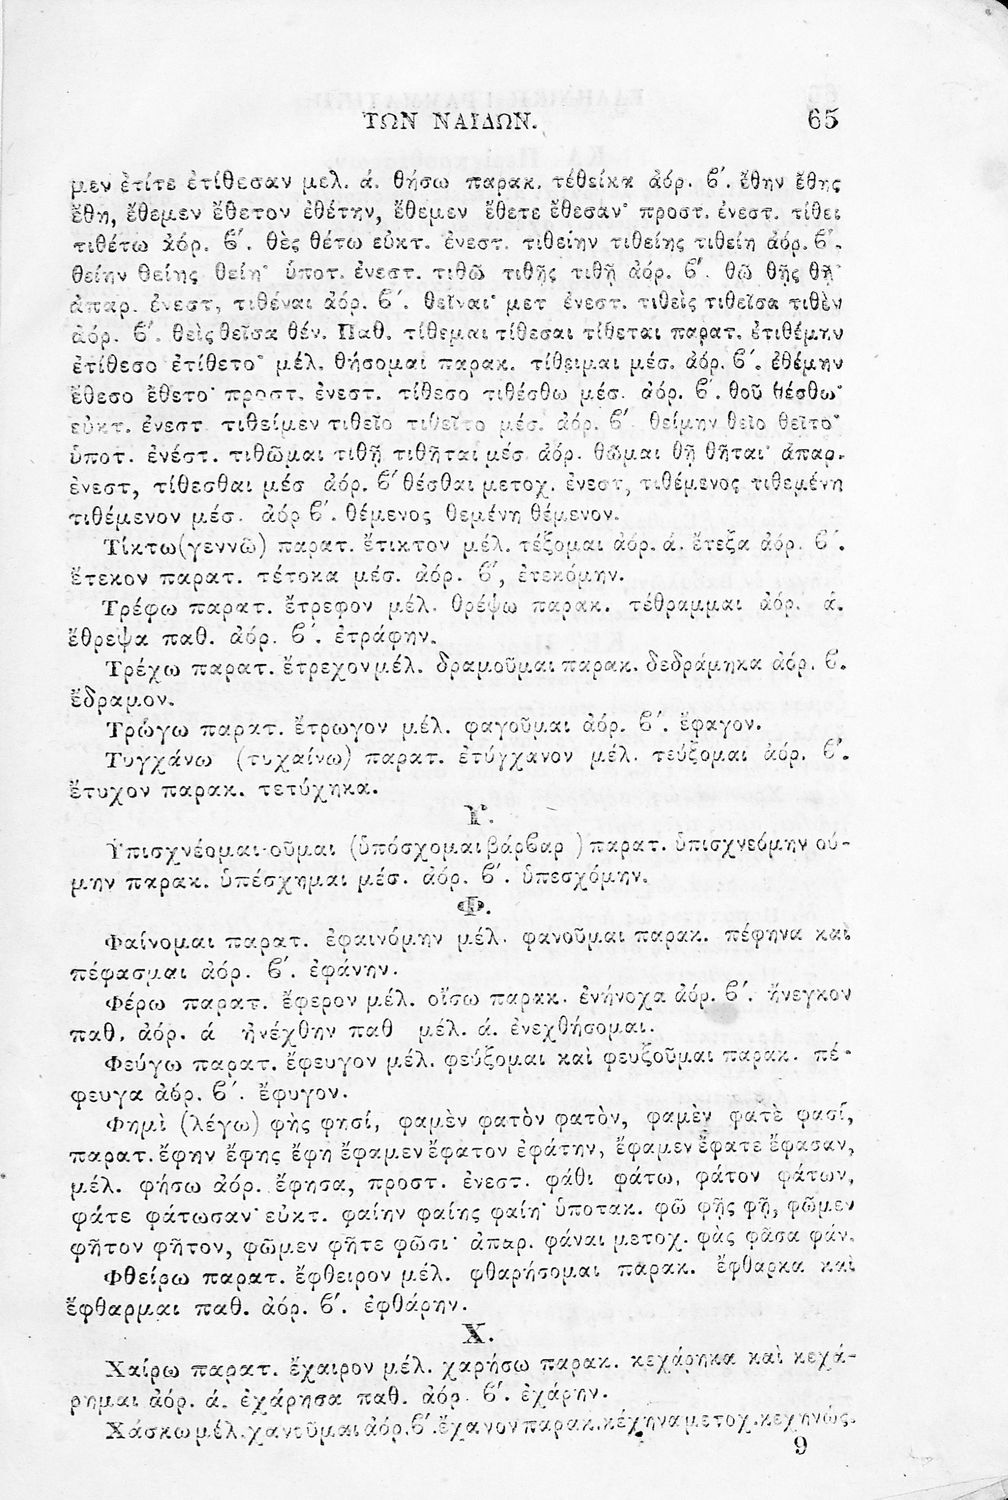 ΤΩΝ ΝΑΙΔΩΝ. 65
μεν ἐτίτε ἐτίθεσαν μελ. ά. θήσω παρακ. τέθεικα ἀόρ. ϐ΄. ἔθην ἔθης
ἔθη, ἔθεμεν ἔθετον ἐθέτην, ἔθεμεν ἔθετε ἔθεσαν· προστ. ἐνεστ. τίθει
τιθέτω ἀόρ. ϐ΄. θὲς θέτω εὐκτ. ἐνεστ. τιθείην τιθείης τιθείη ἀόρ. ϐ΄.
θείην θείης θείη· ὑποτ. ἐνεστ. τιθῶ τιθῇς τιθῇ ἀόρ. ϐ΄. θῶ θῇς θῇ·
ἀπαρ. ἐνεστ, τιθέναι ἀόρ. ϐ΄. θεῖναι· μετ ἐνεστ. τιθεὶς τιθεῖσα τιθὲν
ἀόρ. ϐ΄. θεὶς θεῖσα θέν. Παθ. τίθεμαι τίθεσαι τίθεται παρατ. ἐτιθέμην
ἐτίθεσο ἐτίθετο· μέλ. θήσομαι παρακ. τίθειμαι μέσ. ἀόρ. ϐ΄. ἐθέμην
ἔθεσο ἔθετο· προστ. ἐνεστ. τίθεσο τιθέσθω μέσ. ἀόρ. ϐ΄. θοῦ θέσθω·
εὐκτ. ἐνεστ τιθείμεν τιθεῖο τιθεῖτο μέσ. ἀόρ. ϐ΄ θείμην θεῖο θεῖτο·
ὑποτ. ἐνέστ. τιθῶμαι τιθῇ τιθῆται μέσ ἀόρ. θῶμαι θῇ θῆται· ἀπαρ.
ἐνεστ, τίθεσθαι μέσ ἀόρ. ϐ΄ θέσθαι μετοχ. ἐνεστ, τιθέμενος τιθεμένη
τιθέμενον μέσ. ἀόρ ϐ΄. θέμενος θεμένη θέμενον.
Τίκτω(γεννῶ) παρατ. ἔτικτον μέλ. τέξομαι ἀόρ. ά. ἔτεξα ἀόρ. ϐ΄.
ἔτεκον παρατ. τέτοκα μέσ. ἀόρ. ϐ΄, ἐτεκόμην.
Τρέφω παρατ. ἔτρεφον μέλ. θρέψω παρακ. τέθραμμαι ἀόρ. ά.
ἔθρεψα παθ. ἀόρ. ϐ΄. ἐτράφην.
Τρέχω παρατ. ἔτρεχον μέλ. δραμοῦμαι παρακ. δεδράμηκα ἀόρ. ϐ.
ἔδραμον.
Τρώγω παρατ. ἔτρωγον μέλ. φαγοῦμαι ἀόρ. ϐ΄. ἔφαγον.
Τυγχάνω (τυχαίνω) παρατ. ἐτύγχανον μέλ. τεύξομαι ἀόρ. ϐ΄.
ἔτυχον παρακ. τετύχηκα.
Υ.
Ὑπισχνέομαι-οῦμαι (ὑπόσχομαι βάρϐαρ ) παρατ. ὑπισχνεόμην ού-
μην παρακ. ὑπέσχημαι μέσ. ἀόρ. ϐ΄. ὑπεσχόμην.
Φ.
Φαίνομαι παρατ. ἐφαινόμην μέλ. φανοῦμαι παρακ. πέφηνα καὶ
πέφασμαι ἀόρ. ϐ΄. ἐφάνην.
Φέρω παρατ. ἔφερον μέλ. οἴσω παρακ. ἐνήνοχα ἀόρ. ϐ΄. ἤνεγκον
παθ. ἀόρ. ά ἠνέχθην παθ μέλ. ά. ἐνεχθήσομαι.
Φεύγω παρατ. ἔφευγον μέλ. φεύξομαι καὶ φευξοῦμαι παρακ. πέ-
φευγα ἀόρ. ϐ΄. ἔφυγον.
Φημὶ (λέγω) φὴς φησί, φαμὲν φατὸν φατὸν, φαμὲν φατὲ φασί,
παρατ. ἔφην ἔφης ἔφη ἔφαμεν ἔφατον ἐφάτην, ἔφαμεν ἔφατε ἔφασαν,
μέλ. φήσω ἀόρ. ἔφησα, προστ. ἐνεστ. φάθι φάτω, φάτον φάτων,
φάτε φάτωσαν· εὐκτ. φαίην φαίης φαίη· ὑποτακ. φῶ φῇς φῇ, φῶμεν
φῆτον φῆτον, φῶμεν φῆτε φῶσι· ἀπαρ. φάναι μετοχ. φὰς φᾶσα φάν.
Φθείρω παρατ. ἔφθειρον μέλ. φθαρήσομαι παρακ. ἔφθαρκα καὶ
ἔφθαρμαι παθ. ἀόρ. ϐ΄. ἐφθάρην.
Χ.
Χαίρω παρατ. ἔχαιρον μέλ. χαρήσω παρακ. κεχάρηκα καὶ κεχά-
ρημαι ἀόρ. ά. ἐχάρησα παθ. ἀόρ. ϐ΄. ἐχάρην.
Χάσκω μέλ. χανοῦμαι ἀόρ. ϐ΄. ἔχανον παρακ. κέχηνα μετοχ. κεχηνώς.
9